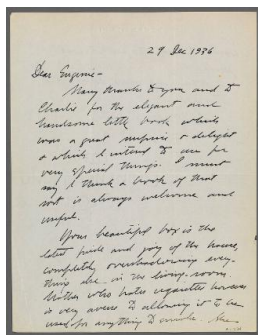 29 Dec 1936
Dear Eugenie -
Many thanks to you and to
Charlie for the elegant and
handsome little book which
was a great surprise & delight
& which I intend to use for
very special things. I must
say I think a book of that
sort is always welcome and
useful.
Your beautiful box is the
latest pride and joy of the house,
completely overshadowing every-
thing else in the living-room.
Mother who hates cigarettes however
is very averse to allowing it to be
used for anything to smoke. She